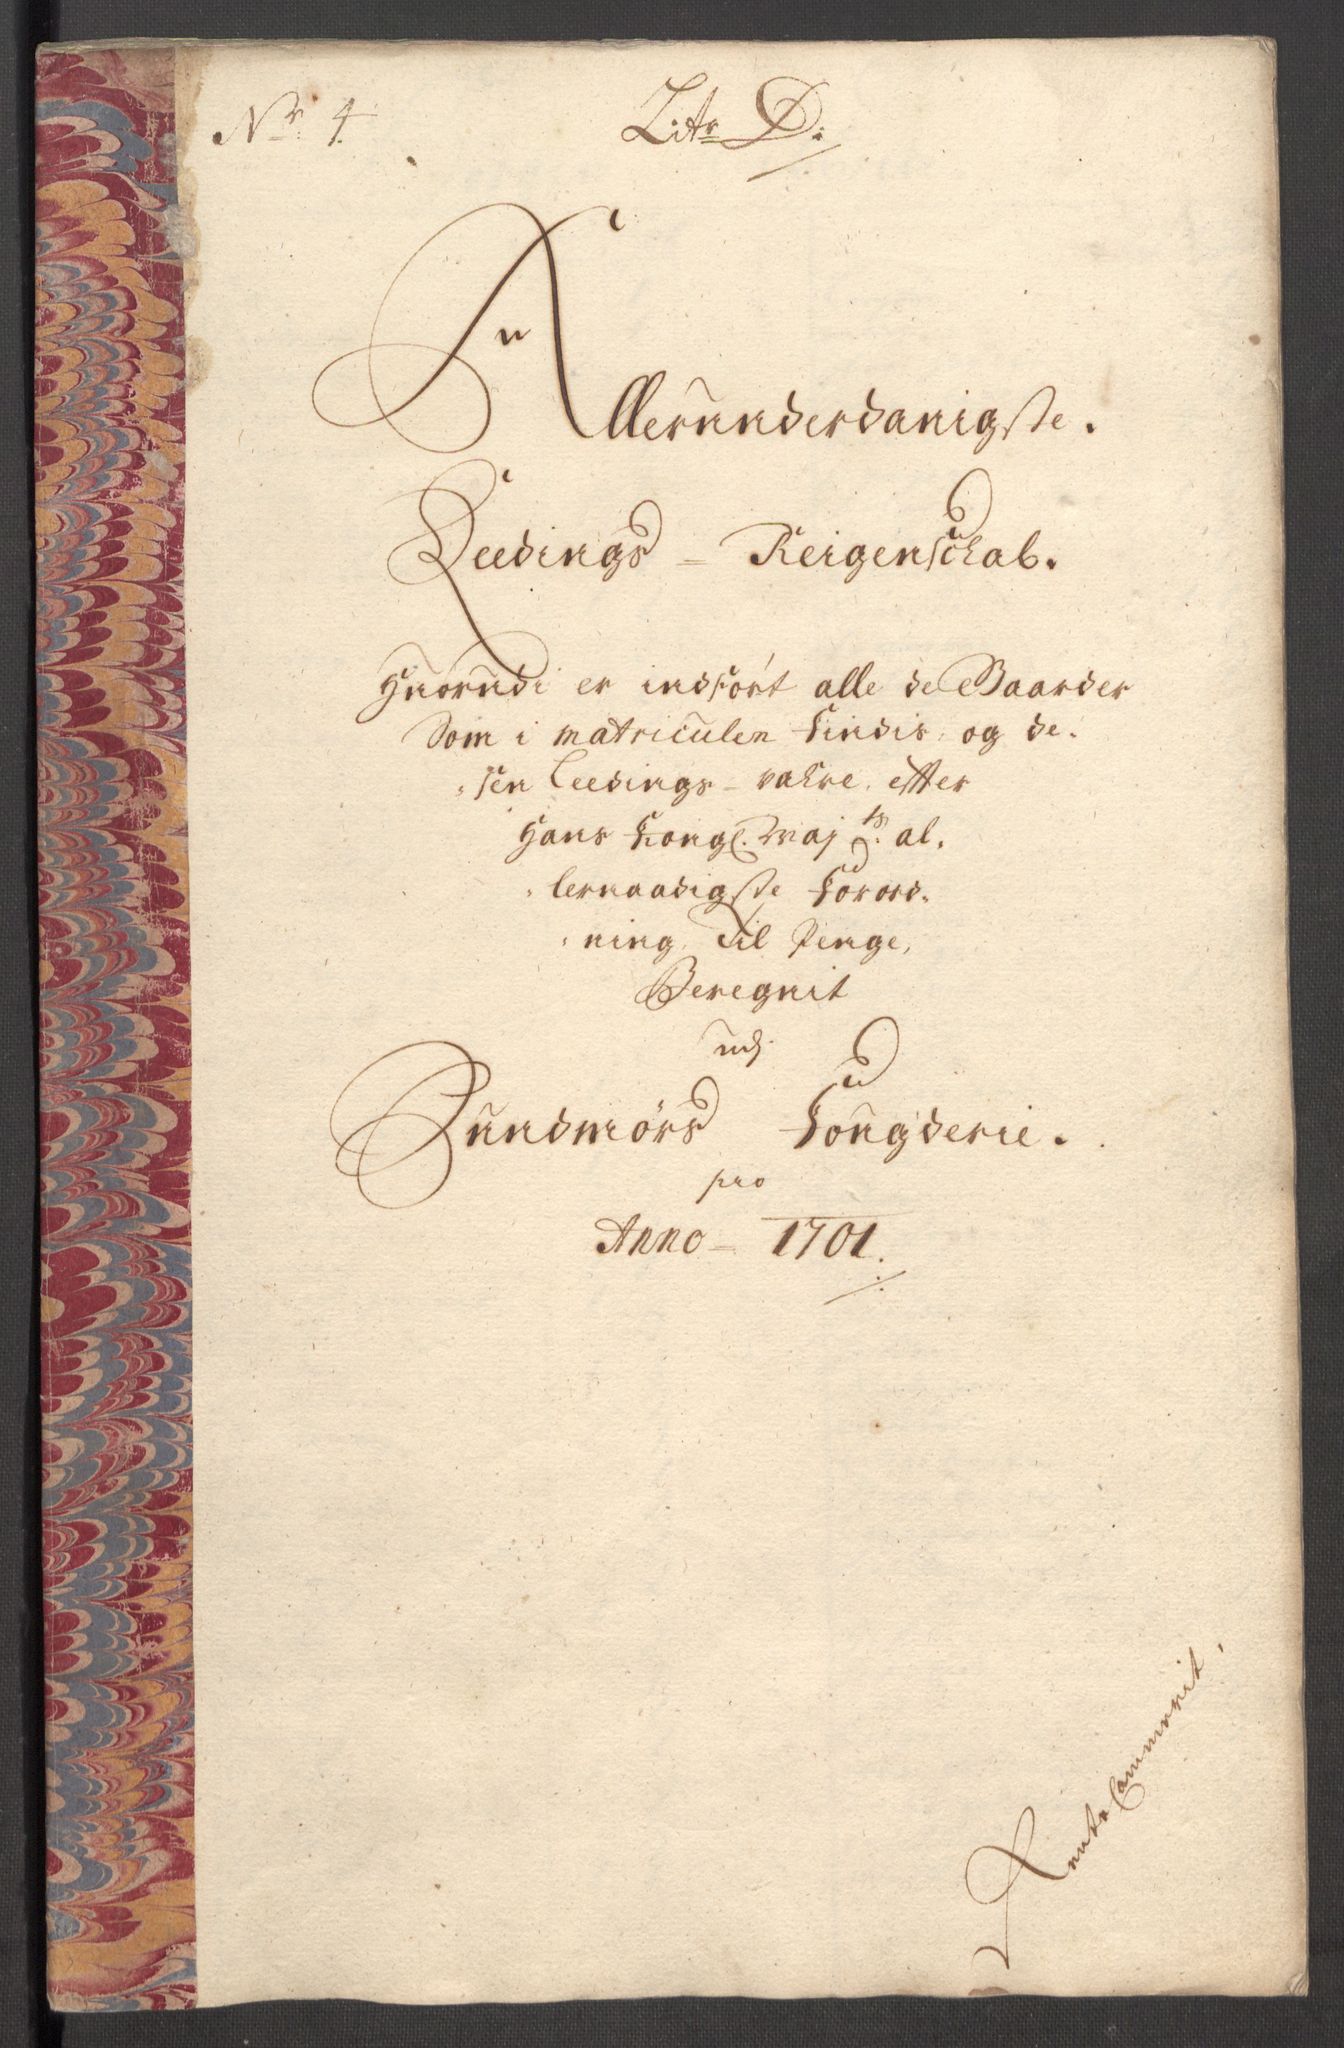 No 4
Litr D:
Allerunderdanigste.
Leedings - Reigenschab.
Huorudi er indført alle de Gaarder
Som i matriculen findis, og de-
sen Leedings - vahre, efter
Hans Kongl. Maj ts: al-
lernaadigste Forord-
ning, Til Penge,
Beregnit
udj
Sundmørs Fougderie.
pro
Anno - 1701.
Rente Cammerit.